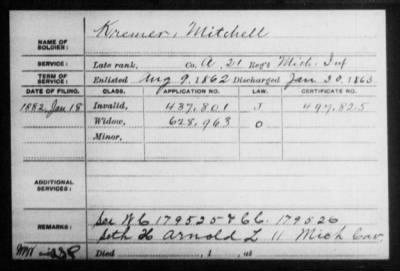 NAME OF SOLDIER: Kremer, Mitchell
SERVICE: Late rank, Co. A, 21 Reg't Mich. Inf
TERM OF SERVICE: Enlisted Aug 9, 1862 Discharged Jan 30, 1863
DATE OF FILING. CLASS. APPLICATION NO. LAW. CERTIFICATE NO.
1882, Jan 18 Invalid, 437,801 J 497,825
Widow, 628,963 O
Minor,
ADDITIONAL SERVICES:
REMARKS: See WC 179525 & CC. 179526
Seth H Arnold L 11 Mich Cav
Died , 1 , at